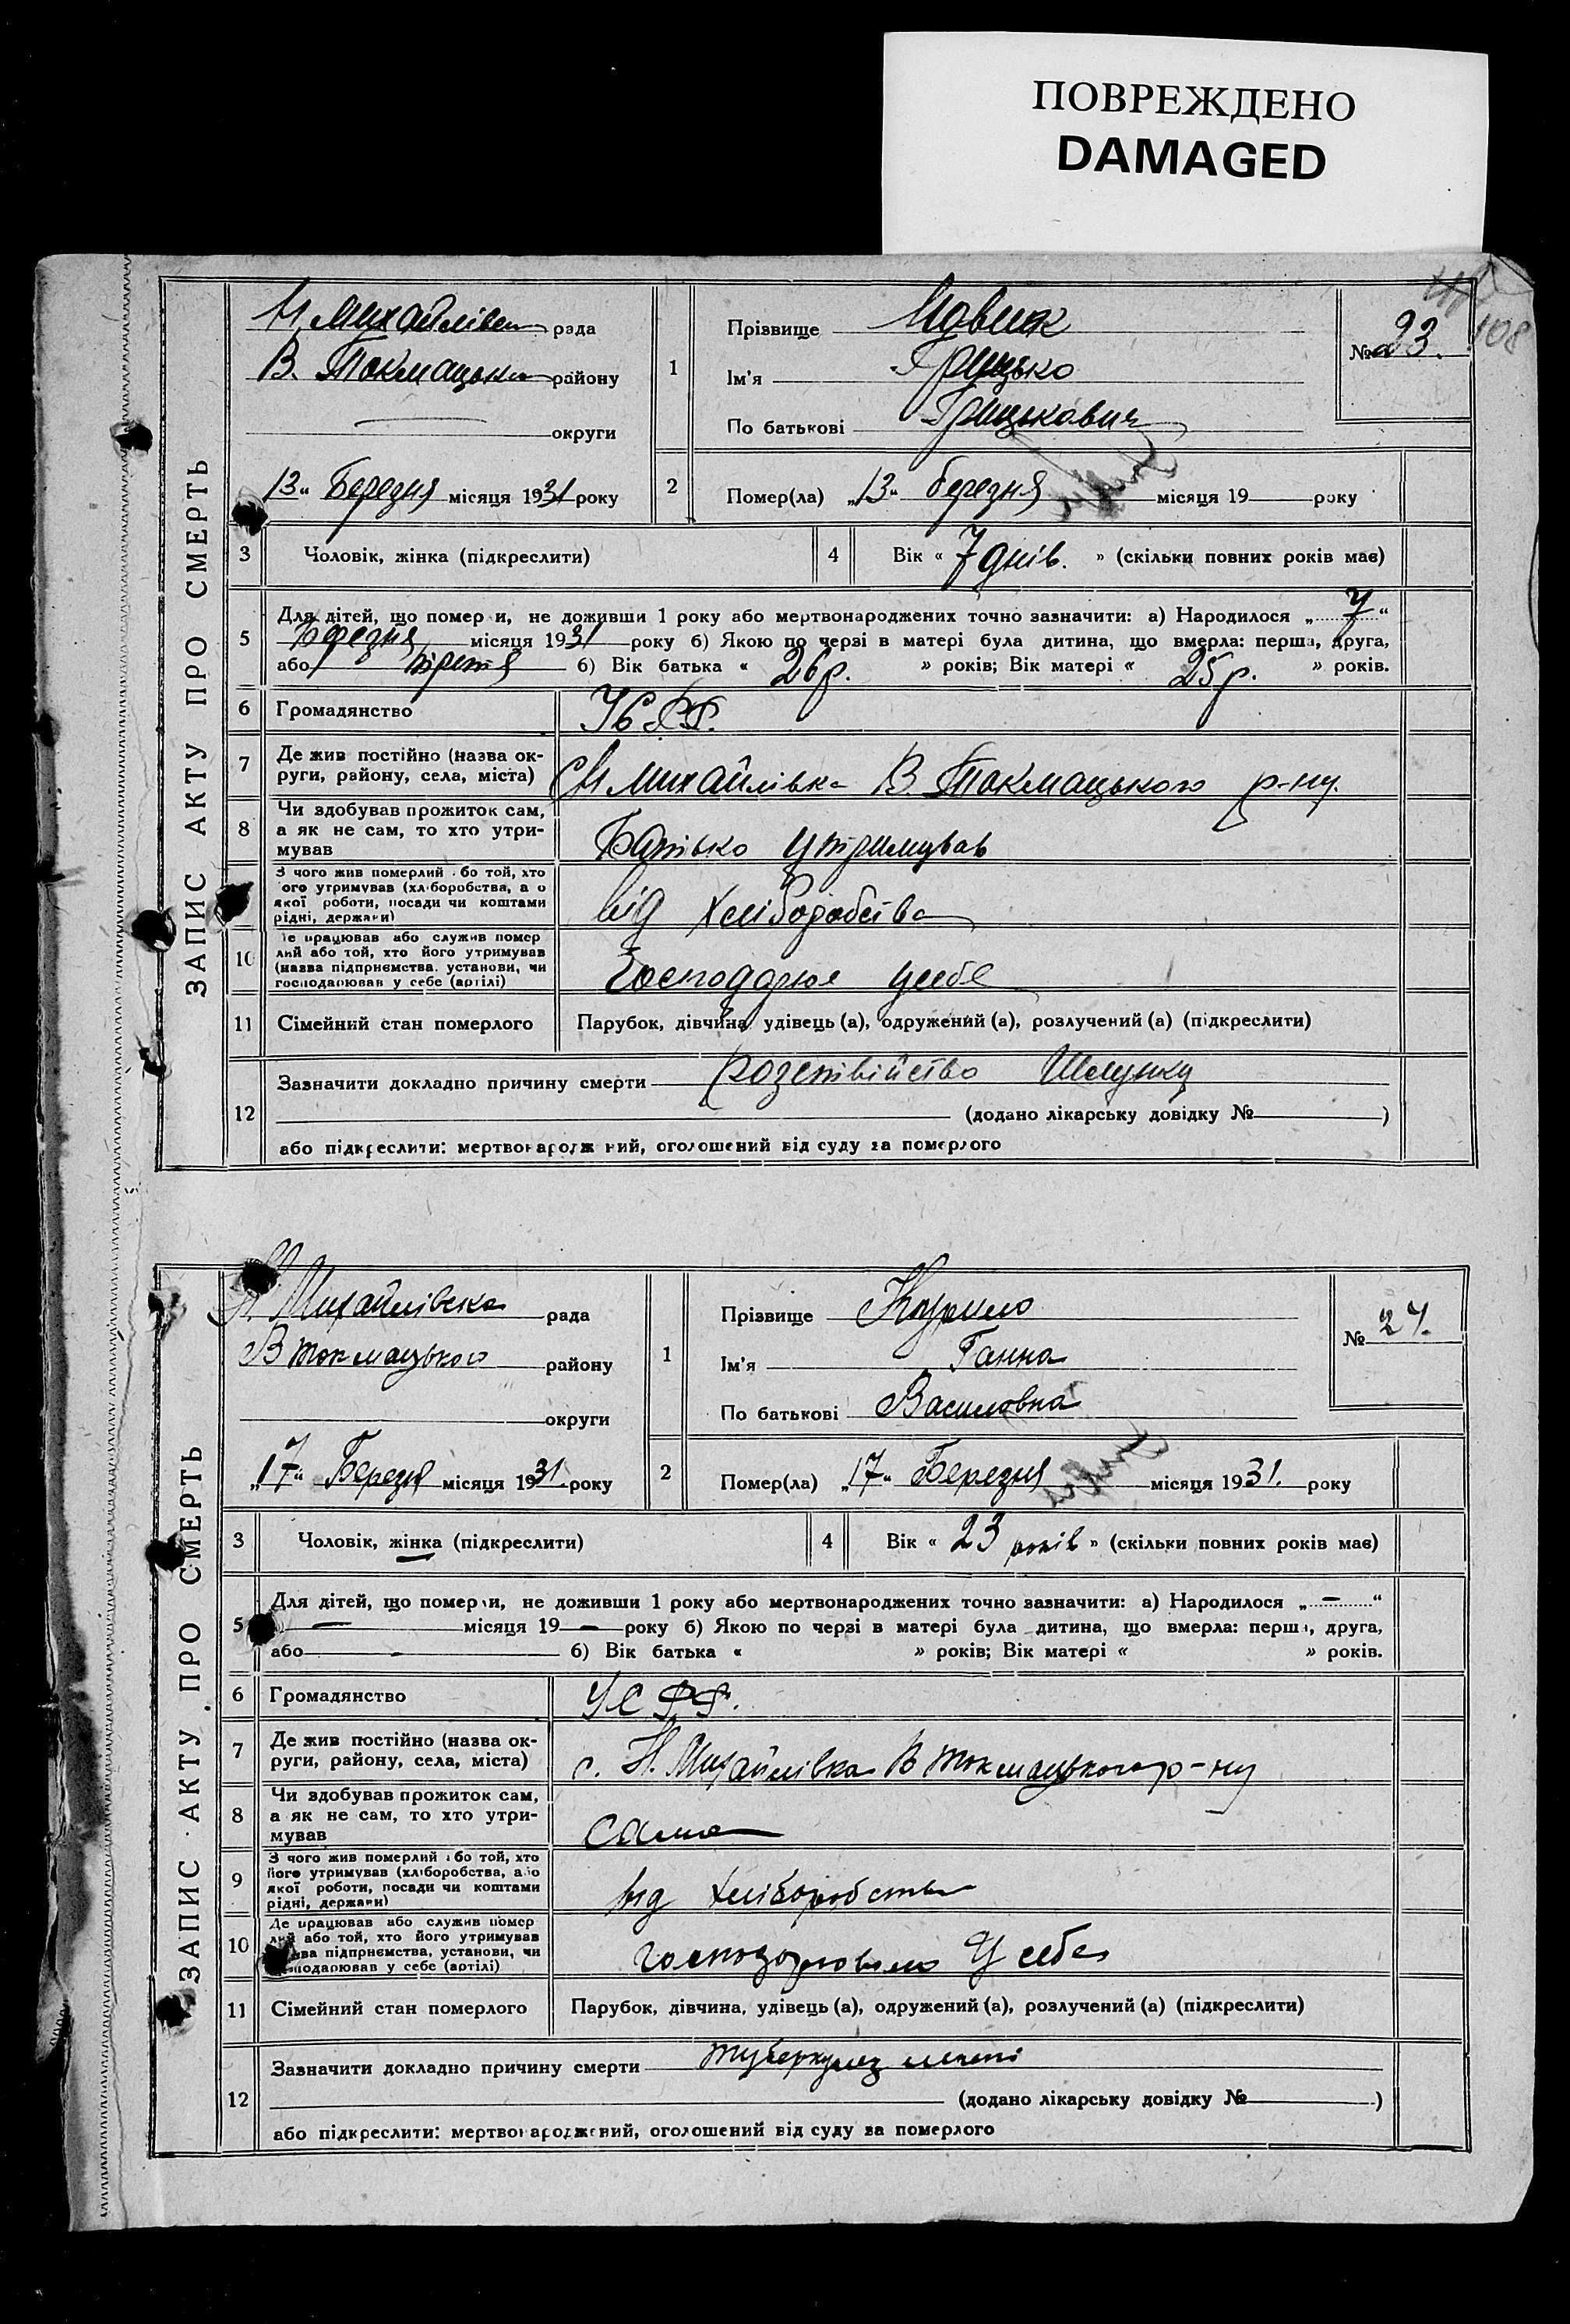 ПОВРЕЖДЕНО
DAMAGED
ЗАПИС АКТУ ПРО СМЕРТЬ
Н. Михайлівська рада
В. Токмацьки району
округи
13 " Березня місяця 1931 року
1
Прізвище
Ім'я Грицько
По батькові Грицькович
№ 23.
108
2
Помер(ла) „ 13 " березня місяця 19 року
3
Чоловік, жінка (підкреслити)
4
Вік « 7 днів. » (скільки повних років має)
5
Для дітей, що померли, не доживши 1 року або мертвонароджених точно зазначити: а) Народилося „ 7 "
Березня місяця 1931 року б) Якою по черзі в матері була дитина, що вмерла: перша, друга,
або третя б) Вік батька « 26 р. » років; Вік матері « 25 р. » років.
6
Громадянство
УСРР.
7
Де жив постійно (назва ок-
руги, району, села, міста)
с. Н Михайлівка В. Токмацького р-ну.
8
Чи здобував прожиток сам,
а як не сам, то хто утри-
мував
Батько утримував
З чого жив померлий або той, хто
його утримував (хліборобства, або
якої роботи, посади чи коштами
рідні, держави)
від хліборобства
10
Де працював або служив помер
лий або той, хто його утримував
(назва підприємства, установи, чи
господарював у себе (артілі)
Господарює у себе
11
Сімейний стан померлого
Парубок, дівчина, удівець (а), одружений (а), розлучений (а) (підкреслити)
12
Зазначити докладно причину смерти розствійство Шлунку
(додано лікарську довідку № )
або підкреслити: мертвонароджений, оголошений від суду за померлого
ЗАПИС АКТУ ПРО СМЕРТЬ
Н. Михайлівська рада
В Токмацького району
округи
„ 17 " Березня місяця 1931 року
1
Прізвище Курило
Ім'я Ганна
По батькові Василовна
№ 24.
2
Помер(ла) „ 17 " Березня місяця 1931. року
3
Чоловік, жінка (підкреслити)
4
Вік « 23 років » (скільки повних років має)
5
Для дітей, що померли, не доживши 1 року або мертвонароджених точно зазначити: а) Народилося „ — "
— місяця 19 — року б) Якою по черзі в матері була дитина, що вмерла: перша, друга,
або — б) Вік батька « » років; Вік матері « » років.
6
Громадянство
УСРР.
7
Де жив постійно (назва ок-
руги, району, села, міста)
с. Н. Михайлівка В Токмацького р-ну
8
Чи здобував прожиток сам,
а як не сам, то хто утри-
мував
сама
9
З чого жив померлий або той, хто
його утримував (хліборобства, або
якої роботи, посади чи коштами
рідні, держави)
від хліборобства
10
Де працював або служив помер
лий або той, хто його утримував
(назва підприємства, установи, чи
господарював у себе (артілі)
господорювала У себе
11
Сімейний стан померлого
Парубок, дівчина, удівець (а), одружений (а), розлучений (а) (підкреслити)
12
Зазначити докладно причину смерти туберкулез легені
(додано лікарську довідку № )
або підкреслити: мертвонароджений, оголошений від суду за померлого